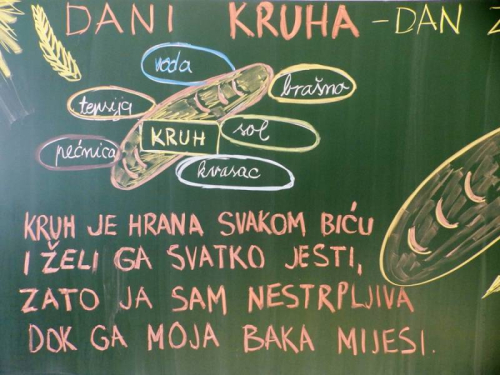 DANI KRUHA - DAN
voda
brašno
tepsija
KRUH
sol
pećnica
kvasac
KRUH JE HRANA SVAKOM BIĆU
I ŽELI GA SVATKO JESTI,
ZATO JA SAM NESTRPLJIVA
DOK GA MOJA BAKA MIJESI.